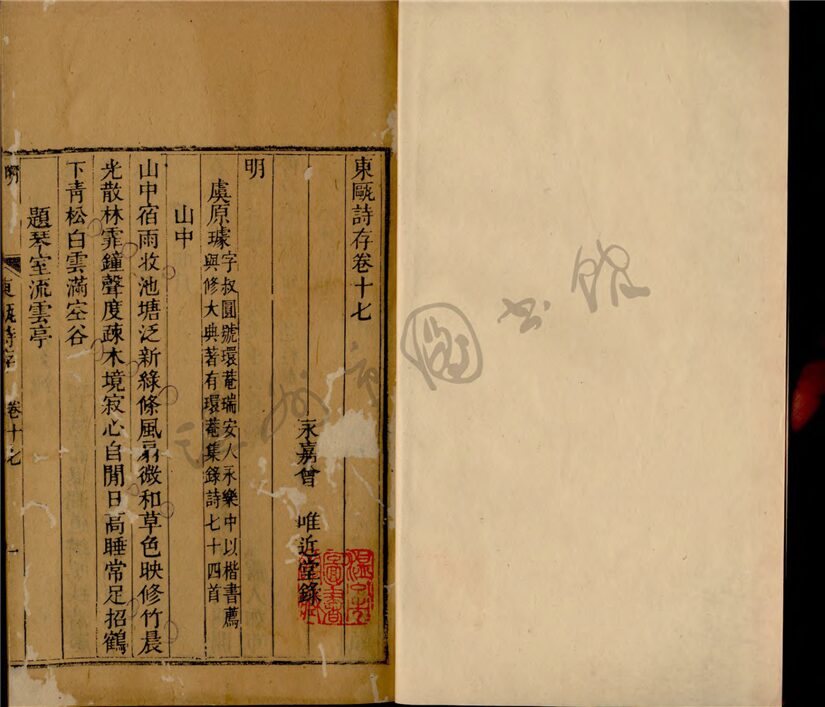 東甌詩存卷十七
永嘉曾　唯近堂錄
明
虞原璩字叔圓號環菴瑞安人永樂中以楷書薦
與修大典著有環菴集錄詩七十四首
山中
山中宿雨收池塘泛新綠條風扇微和草色映修竹晨
光散林霏鐘聲度疎木境寂心自閒日高睡常足招鶴
下靑松白雲滿空谷
題琴室流雲亭
明
東甌詩存
卷十七
一
圖書館